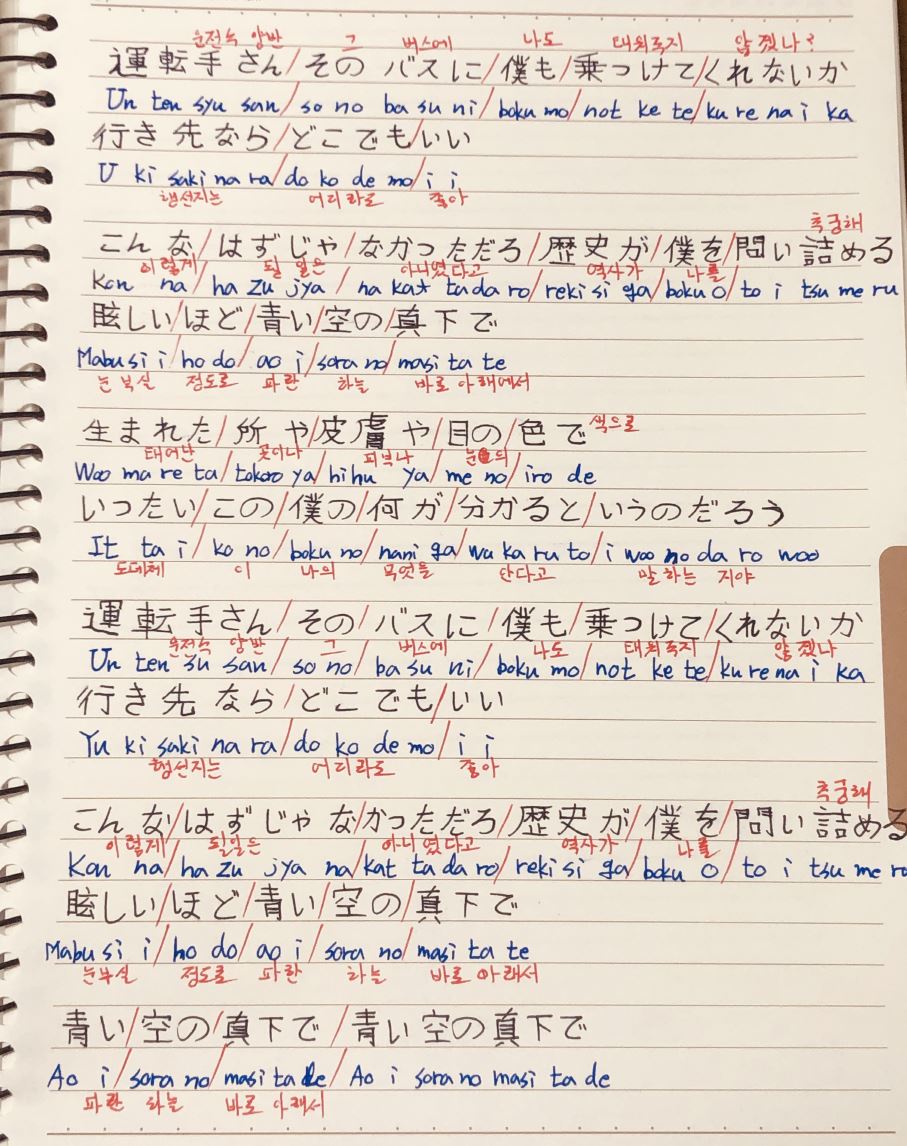 운전수 양반 그 버스에 나도 태워주지 않겠나?
運転手さん/そのバスに/僕も/乗っけて/くれないか
Un ten syu san/so no ba su ni/boku mo/not ke te/ku re na i ka
行き先なら/どこでも/いい
U ki saki na ra/do ko de mo/i i
행선지는 어디라도 좋아
추궁해
こんな/はずじゃ/なかっただろ/歴史が/僕を/問い詰める
이렇게 될 일은 아니였다고 역사가 나를
Kon na/ha zu jya/na kat ta da ro/reki si ga/boku o/to i tsu me ru
眩しい/ほど/青い/空の/真下で
Mabu si i/ho do/ao i/sora no/masi ta te
눈부실 정도로 파란 하늘 바로 아래에서
生まれた/所や/皮膚や/目の/色で 색으로
태어난 곳이나 피부나 눈의
Woo ma re ta/tokoro ya/hi hu ya/me no/iro de
いったい/この/僕の/何が/分かると/いうのだろう
It ta i/ko no/boku no/nani ga/wa ka ru to/i woo no da ro woo
도데체 이 나의 무엇을 안다고 말하는 지야
運転手さん/その/バスに/僕も/乗っけて/くれないか
운전수 양반 그 버스에 나도 태워주지 않겠나
Un ten su san/so no/ba su ni/boku mo/not ke te/ku re na i ka
行き先なら/どこでも/いい
Yu ki saki na ra/do ko de mo/i i
행선지는 어디라도 좋아
추궁해
こんな/はずじゃなかっただろ/歴史が/僕を/問い詰める
이렇게 될일은 아니였다고 역사가 나를
Kon na/ha zu jya na/kat ta da ro/reki si ga/boku o/to i tsu me ru
眩しい/ほど/青い/空の/真下で
Mabu si i/ho do/ao i/sora no/masi ta te
눈부실 정도로 파란 하늘 바로 아래서
青い/空の/真下で/青い空の真下で
Ao i/sora no/masi ta de/Ao i sora no masi ta de
파란 하늘 바로 아래서